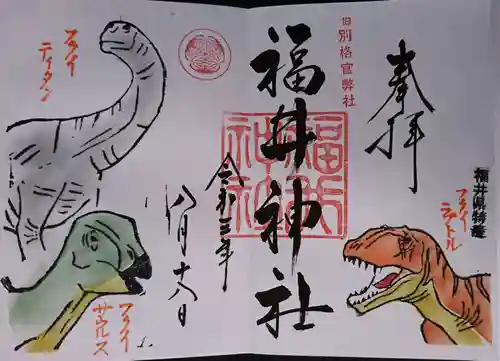 奉拝
旧別格官弊社
福井神社
福井神社
令和三年
八月十八日
福井県特産
フクイ
ティタン
フクイ
サウルス
フクイ
ラプトル